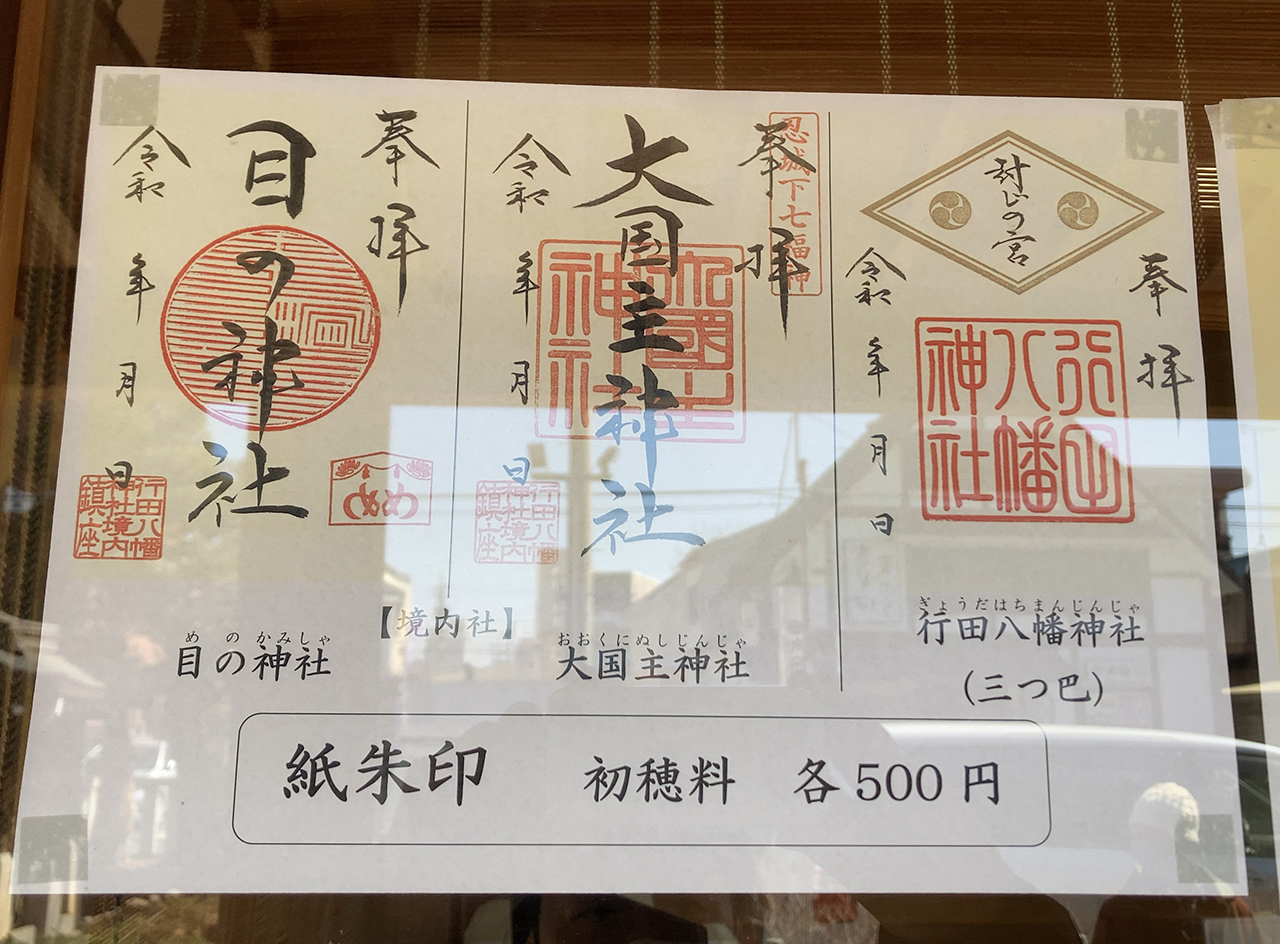 封じの宮
奉拝
行田
八幡
神社
令和 年 月 日
ぎょうだはちまんじんじゃ
行田八幡神社
(三つ巴)
忍城下七福神
奉拝
大国主神社
大國主
神社
令和 年 月 日
行田八幡
神社境内
鎮座
【境内社】
おおくにぬしじんじゃ
大国主神社
奉拝
目の神社
令和 年 月 日
行田八幡
神社境内
鎮座
めのかみしゃ
目の神社
紙朱印 初穂料 各500円